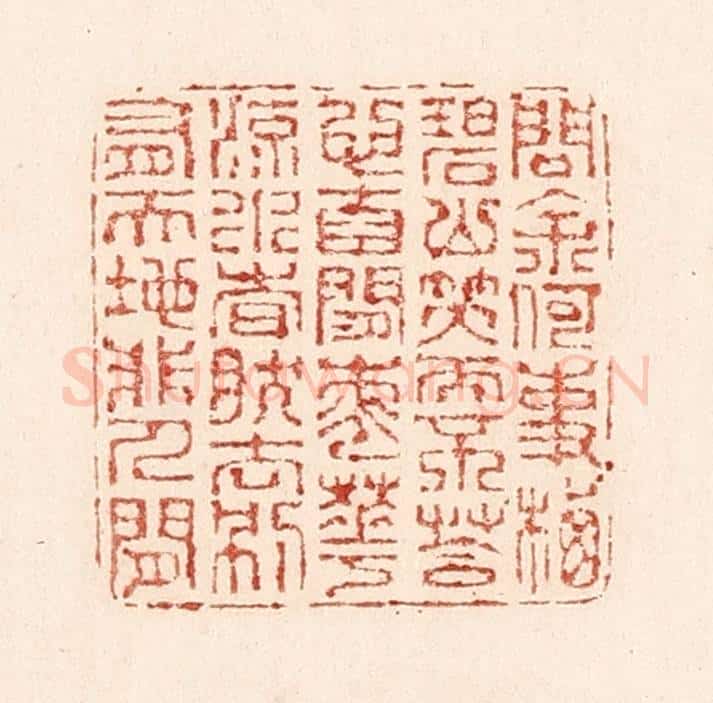 問余何事栖
碧山笑而不答
心自閒桃華
流水窅然去別
有天地非人閒
Shufawang.CN